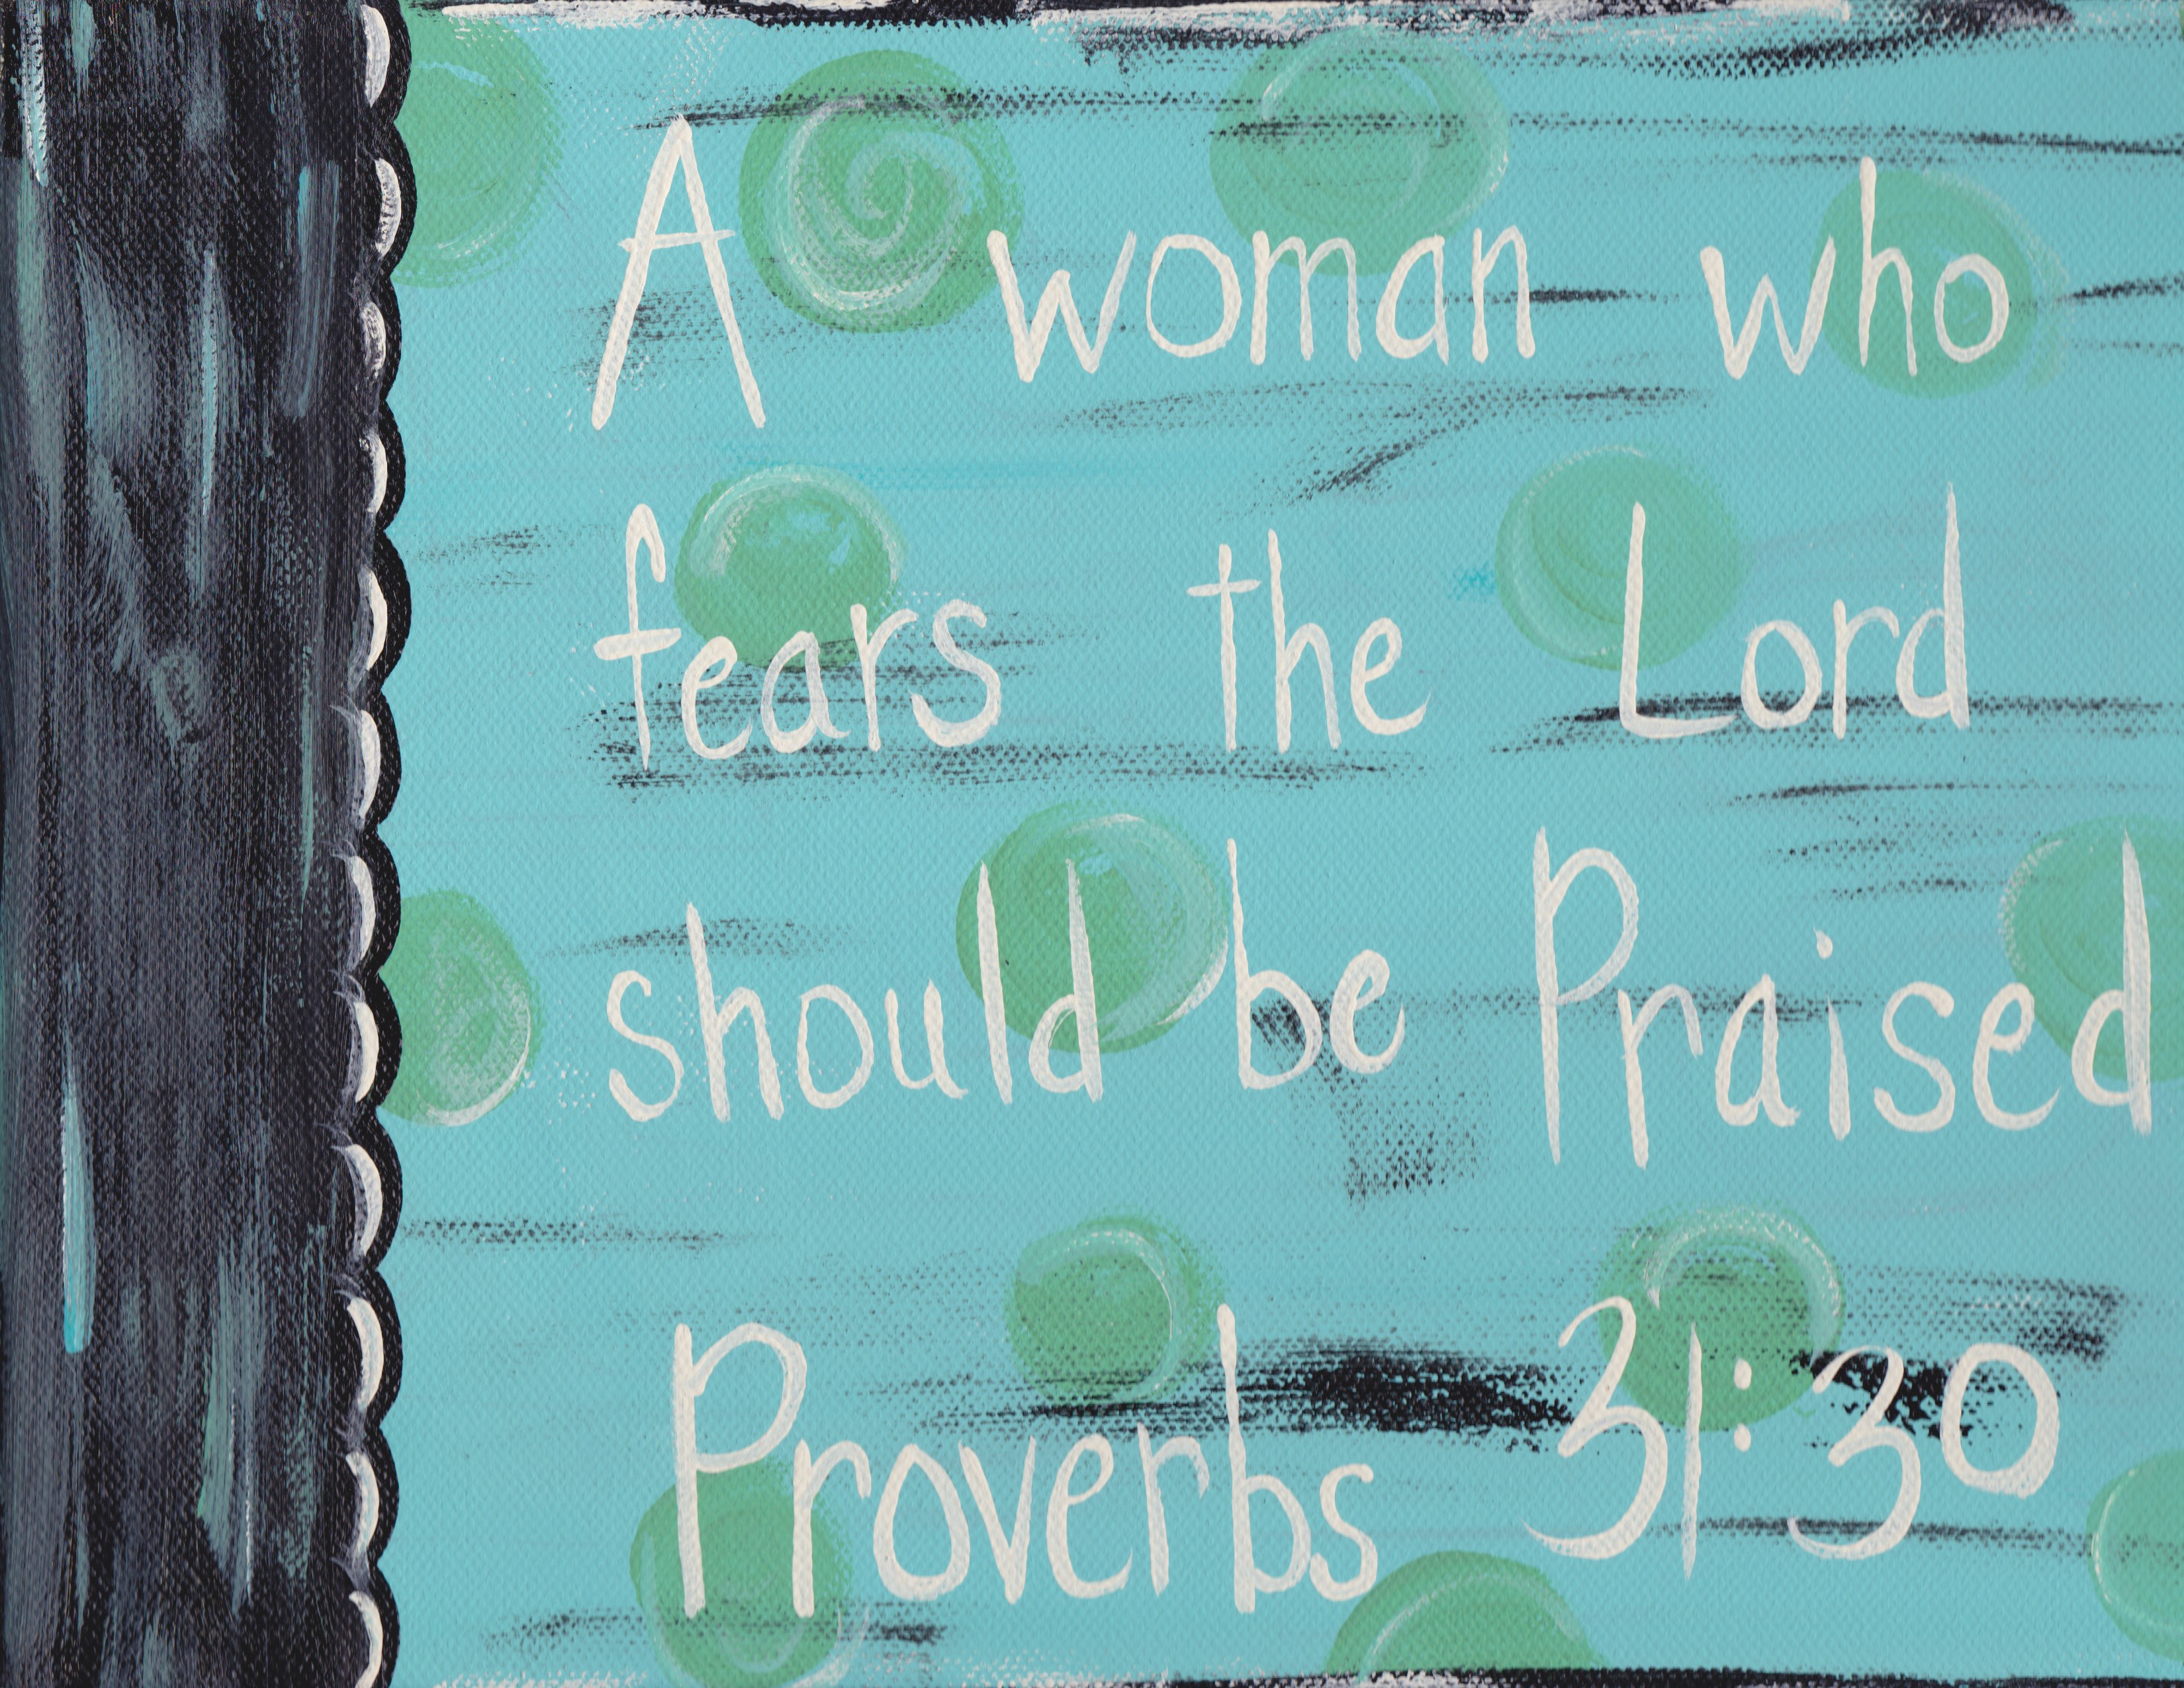 A woman who
fears the Lord
should be Praised
Proverbs 31:30